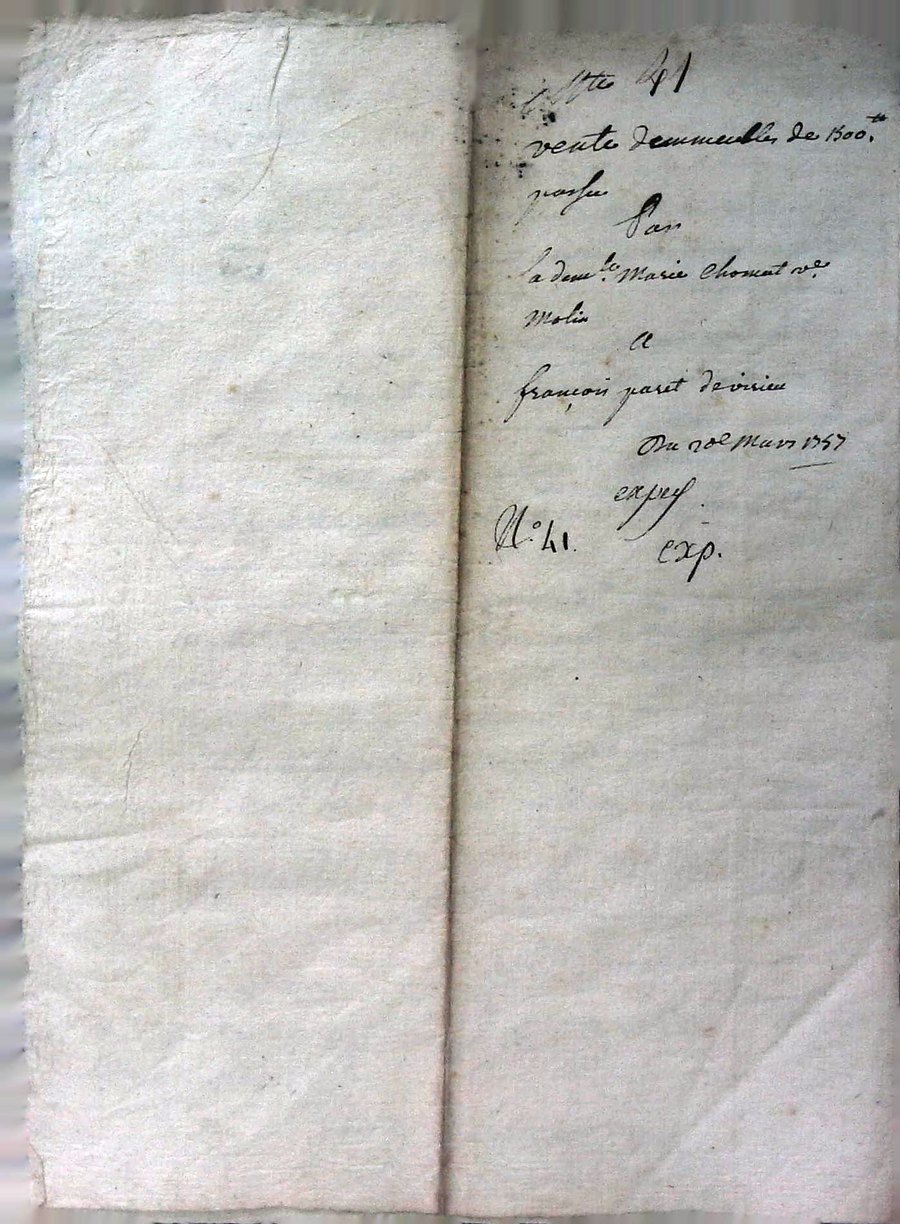 41
vente demmeubles de 1500.tt
passée
Par
la demlle. Marie Chomat ve.
Molin
A
françois paret de virieu
Du 20e Mars 1757
exped
No. 41.
exp.